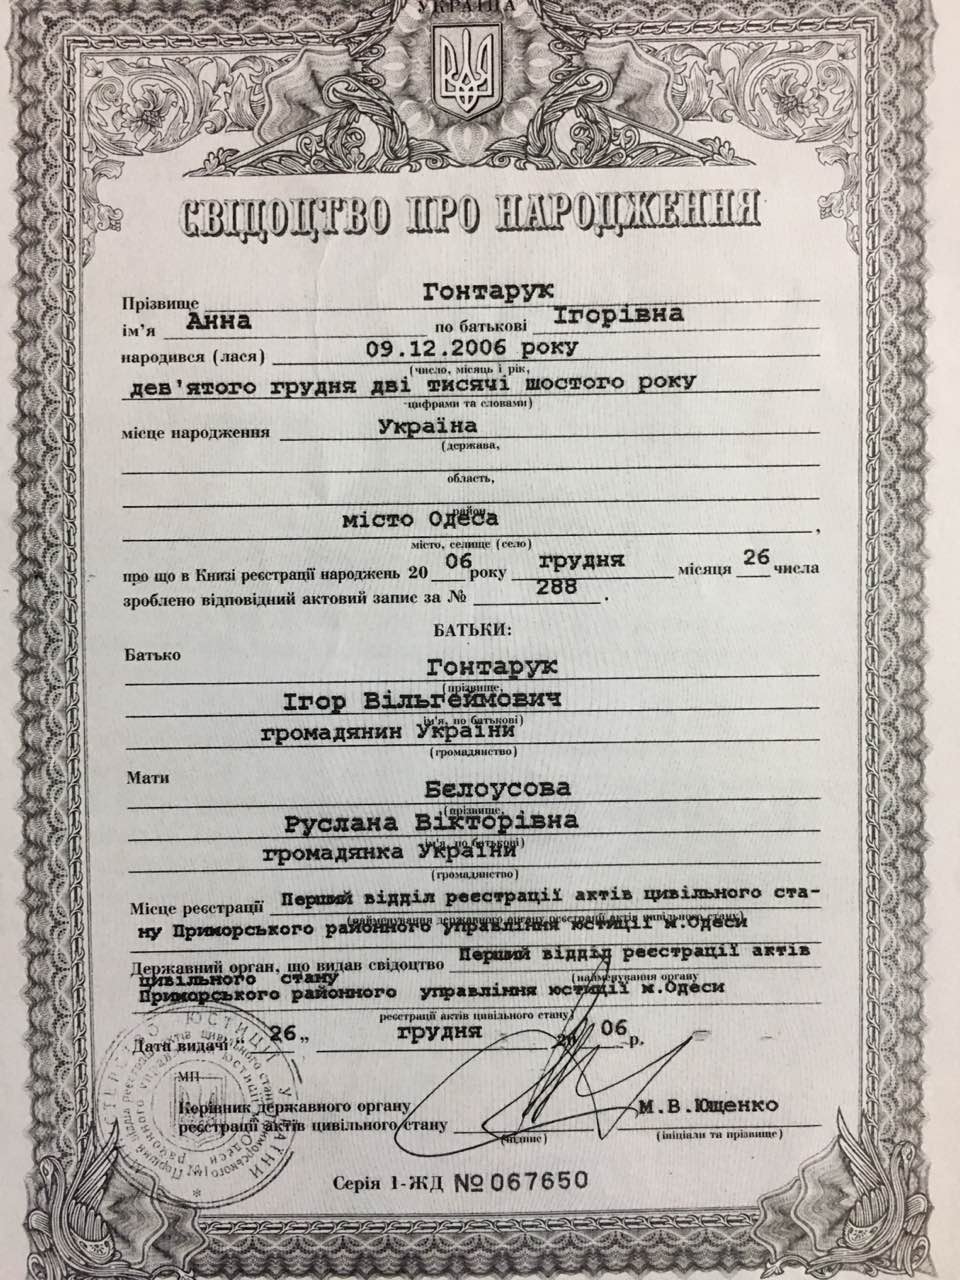 УКРАЇНА
СВІДОЦТВО ПРО НАРОДЖЕННЯ
Прізвище Гонтарук
ім'я Анна по батькові Ігорівна
народився (лася) 09.12.2006 року
(число, місяць і рік,
дев'ятого грудня дві тисячі шостого року
цифрами та словами)
місце народження Україна
(держава,
область,
район
місто Одеса ,
місто, селище (село)
про що в Книзі реєстрації народжень 20 06 року грудня місяця 26 числа
зроблено відповідний актовий запис за № 288 .
БАТЬКИ:
Батько Гонтарук
(прізвище,
Ігор Вільгеймович
ім'я, по батькові)
громадянин України
(громадянство)
Мати Бєлоусова
(прізвище,
Руслана Вікторівна
ім'я, по батькові)
громадянка України
(громадянство)
Місце реєстрації Перший відділ реєстрації актів цивільного ста-
(найменування державного органу реєстрації актів цивільного стану)
ну Приморського районного управління юстиції м.Одеси
Державний орган, що видав свідоцтво Перший відділ реєстрації актів
(найменування органу
цивільного стану
Приморського районного управління юстиції м.Одеси
реєстрації актів цивільного стану)
Дата видачі „ 26 „ грудня 20 06 р.
МП
Керівник державного органу
реєстрації актів цивільного стану М.В.Ющенко
(підпис) (ініціали та прізвище)
Серія 1-ЖД № 067650